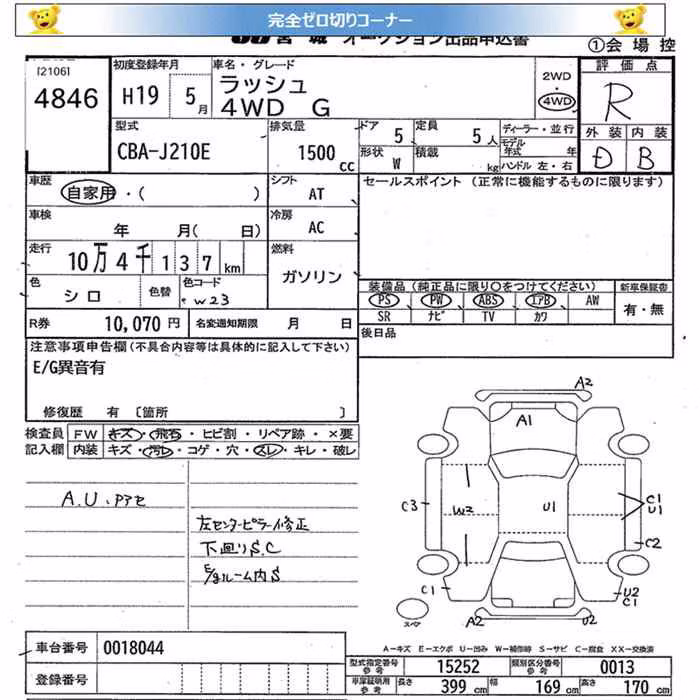 完全ゼロ切りコーナー
宮城 オークション出品申込書
①会場控
[2106]
4846
初度登録年月
H19 5月
車名・グレード
ラッシュ
4WD G
2WD
・
4WD
評価点
R
外装 内装
D B
型式
CBA-J210E
排気量
1500 cc
ドア 5
定員 5人
形状 W
積載 kg
ディーラー・並行
モデル年式 年
ハンドル 左・右
車歴
自家用・( )
シフト
AT
セールスポイント (正常に機能するものに限ります)
車検
年 月( 日)
冷房
AC
走行
10万4千137km
燃料
ガソリン
色
シロ
色替
色コード
W23
装備品 (純正品に限り○をつけてください)
新車保証書
PS PW ABS エアB AW
SR ナビ TV カワ
有・無
R券 10,070円
名変通知期限 月 日
後日品
注意事項申告欄(不具合内容等は具体的に記入して下さい)
E/G異音有
修復歴 有 〔箇所 〕
検査員 FW キズ・飛石・ヒビ割・リペア跡・×要
記入欄 内装 キズ・汚レ・コゲ・穴・スレ・キレ・破レ
A.U.アアセ
左センターピラー修正
下廻りS.C
E/gルーム内S
A2
A1
C3
W2
U1
C1
U1
C2
C1
U2
C1
A2
U2
スペア
A-キズ E-エクボ U-凹み W-補修跡 S-サビ C-腐食 XX-交換済
車台番号 0018044
登録番号
型式指定番号 参考 15252
類別区分番号 参考 0013
車庫証明用 参考 長さ 399 cm 幅 169 cm 高さ 170 cm